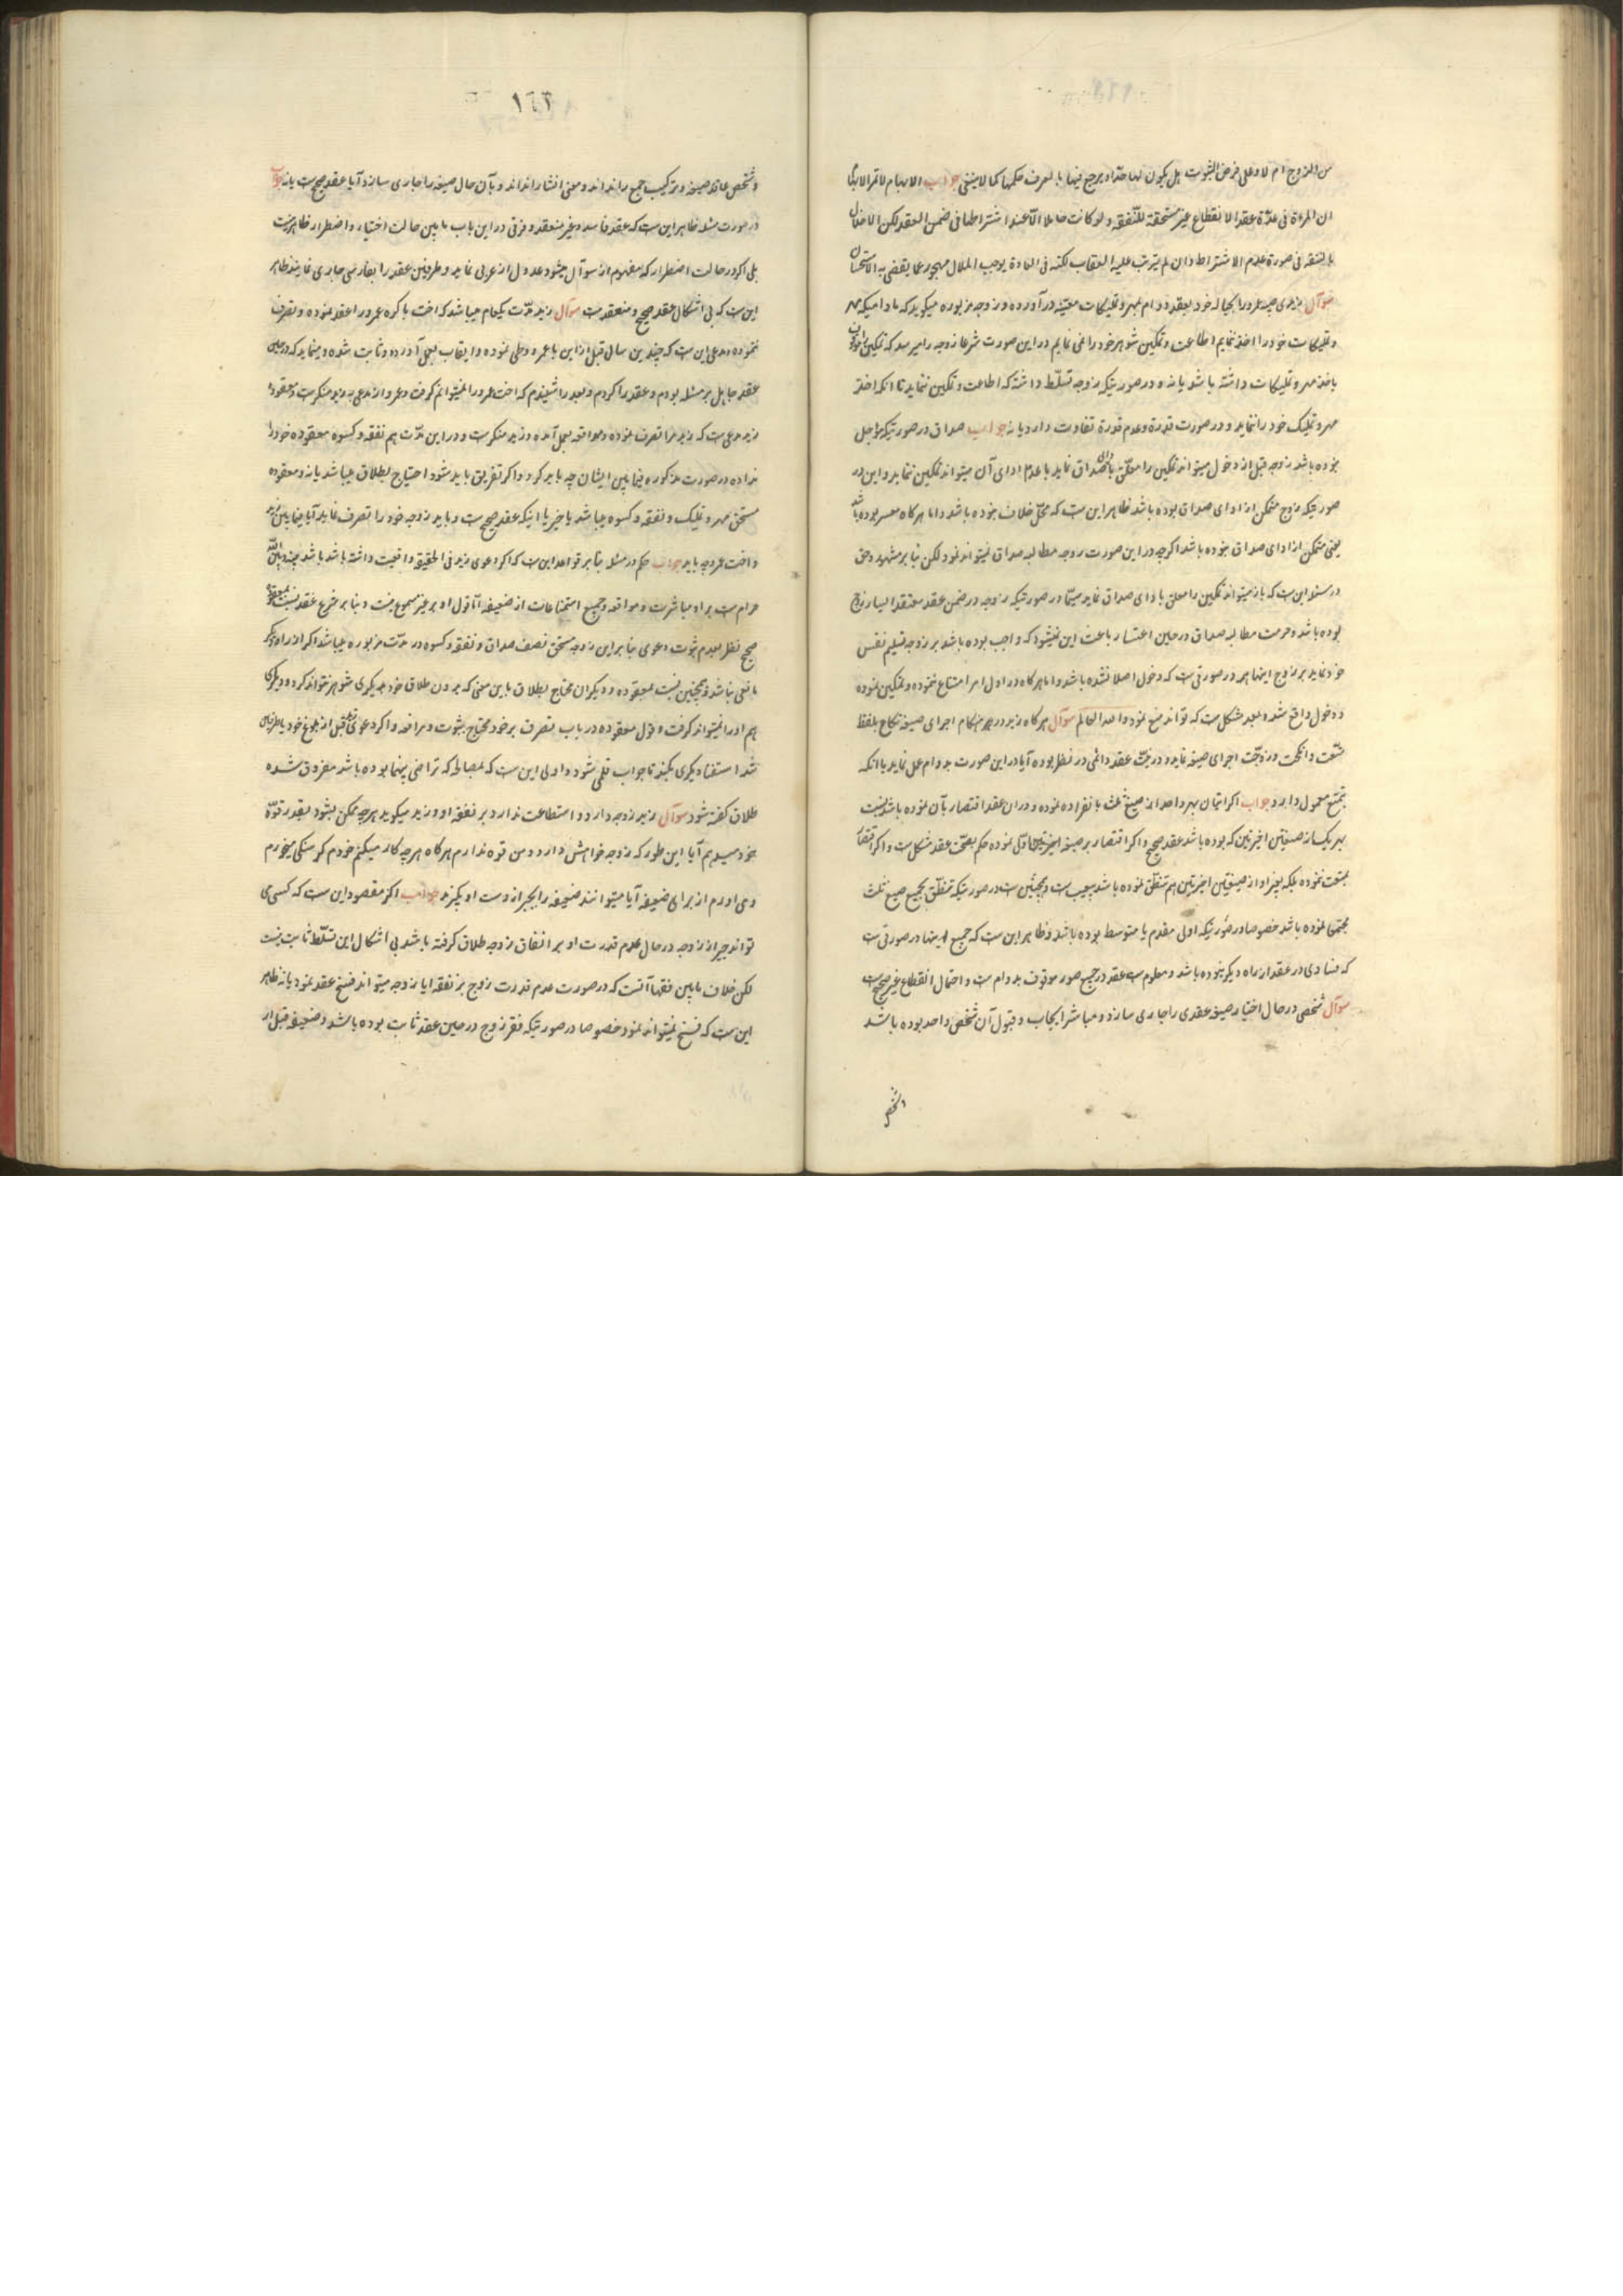 من الزوج ام لا و على فرض الثبوت هل يكون لها حدّ او يرجع فيها بالعرف حكمها كما لا ينبغي جواب الابهام لا
ان المرءة فى عدّة عقد الانقطاع غير مستحقة للنّفقه و لو كانت حاملا الّا عند اشتراطها فى ضمن العقد لكن الاخلال
بالنفقه فى صورة عدم الاشتراط و ان لم يترتب عليه العقاب لكنه فى العادة يوجب الملال مهجور عما يقضى به الاستحسان
سوآل زيدى صبيه عمرو را بحباله خود بعقد دوام بمهر و تمليكات معيّنه در آورده و زوجه مزبوره ميكويد كه ما داميكه مهر
و تمليكات خود را اخذ ننمايم اطاعت و تمكين شوهر خود را نمى نمايم در اين صورت شرعا زوجه را ميرسد كه تمكين
باخذ مهر و تمليكات داشته باشد يا نه و در صورتيكه زوجه تسلّط داشته كه اطاعت و تمكين ننمايد تا انكه اخذ
مهر و تمليك خود را ننمايد و در صورت قدرة و عدم قدرة تفاوت دارد يا نه جواب صداق در صورتيكه مؤجل
نبوده باشد زوجه قبل از دخول ميتواند تمكين را معلّق باداى صداق نمايد با عدم اداى آن ميتواند تمكين ننمايد و اين در
صورتيكه زوج متمكن از اداى صداق بوده باشد ظاهر اين ست كه محلّ خلاف نبوده باشد و اما هركاه معسر بوده باشد
يعنى متمكن از اداى صداق نبوده باشد اكرچه در اين صورت زوجه مطالبه صداق نميتواند نمود لكن بنا بر مشهور و حق
در مسئله اين ست كه باز ميتواند تمكين را معلق باداى صداق نمايد سيّما در صورتيكه زوجه در ضمن عقد معتقد ايسار زوج
بوده باشد و حرمت مطالبه صداق در حين اعسار باعث اين نميشود كه واجب بوده باشد بر زوجه تسليم نفس
خود نمايد بر زوج اينها همه در صورتى ست كه دخول اصلا نشده باشد و اما هركاه در اول امر امتناع ننموده و تمكين نموده
و دخول واقع شده بعد مشكل ست كه تواند منع نمود و الله العالم سوآل هركاه زيد در هنكام اجراى صيغه نكاح بلفظ
متّعت و انكحت و زوّجت اجراى صيغه نمايد و در نيّت عقد دائمى در نظر بوده آيا در اين صورت بدوام عمل نمايد يا انكه
بتمتع معمول دارد جواب اكر اتيان بهر واحد از صيغ ثلث بانفراده نموده و در ان عقد اقتصار بآن نموده باشد نسبت
بهر يك از صيغتين اخيرتين كه بوده باشد عقد صحيح و اكر اقتصار بر صيغه اولى نموده حكم بصحّت عقد مشكل ست و اكر اقتصار
بمتعت ننموده بلكه بعد از او از صيغتين اخيرتين هم تنطّق نموده باشد بيعيب ست و همچنين ست در صورتيكه تنطّق بجميع صيغ ثلث
مجتمعا نموده باشد خصوصا در صورتيكه اولى مقدم يا متوسط بوده باشد و ظاهر اين ست كه جميع اينها در صورتى ست
كه فسادى در عقد از راه ديكر نبوده باشد و معلوم ست عقد در جميع صور موقوف بدوام ست و احتمال انقطاع غير صحيح ست
سوآل شخصى در حال اختيار صيغه عقدى را جارى سازد و مباشر ايجاب و قبول آن شخص واحد بوده باشد
و شخص
١٦٢
و شخص عاقد صيغه و تركيب جمع را نداند و معنى انشا را نداند و بآن حال صيغه را جارى سازد آيا عقد صحيح ست يا نه جواب
در صورت مسئله ظاهر اين ست كه عقد فاسد و غير منعقد و فرقى در اين باب ما بين حالت اختيار و اضطرار ظاهر نيست
بلى اكر در حالت اضطرار كه مفهوم از سوآل ميشود عدول از عربى نمايد و طرفين عقد را بفارسى جارى نمايند ظاهر
اين ست كه بى اشكال عقد صحيح و منعقد ست سوآل زيد مدّت يكعام ميباشد كه اخت باكره عمرو را عقد نموده و تصرف
ننموده و مدعى اين ست كه چندين سال قبل از اين با عمرو وطى نموده و ايقاب بعمل آورده و ثابت شده و مينمايد كه در حين
عقد جاهل بر مسئله بودم و عقد را كردم و بعد را شنيدم كه اخت عمرو را نميتوانم كرفت و عمرو از مدعى به زيد منكر ست و معقوده
زيد مدعى ست كه زيد مرا تصرف نموده و مواقعه بعمل آمده و زيد منكر ست و در اين مدّت هم نفقه و كسوه معقوده خود را
نداده در صورت مذكوره فيما بين ايشان چه بايد كرد و اكر تفريق بايد شود احتياج بطلاق ميباشد يا نه و معقوده
مستحق مهر و تمليك و نفقه و كسوه ميباشد يا خير يا اينكه عقد صحيح ست و بايد زوجه خود را تصرف نمايد آيا فيما بين زيد
و اخت عمرو چه بايد جواب حكم در مسئله بنا بر قواعد اين ست كه اكر دعوى زيد فى الحقيقه واقعيت داشته باشد باشد بينه و بين الله
حرام ست بر او مباشرت و مواقعه و جميع استمتاعات از ضعيفه امّا قول او بر غير مسموع نيست و بنا بر شرع عقد نسبت بمعقوده
صحيح نظر بعدم ثبوت دعوى بنا بر اين زوجه مستحق نصف صداق و نفقه و كسوه در مدّت مزبوره ميباشد اكر از راه ديكر
مانعى نباشد و همچنين نسبت بمعقوده و ديكران محتاج بطلاق باين معنى كه بدون طلاق خود بديكرى شوهر نتواند كرد و ديكرى
هم او را نميتواند كرفت و قول معقوده در باب تصرف بر خود محتاج بثبوت و مرافعه و اكر دعوى وطى قبل از بلوغ خود يا طرفين
شد استفتا ديكرى بكند تا جواب قلمى شود و اولى اين ست كه بمصالحه كه تراضى بينهما بوده باشد مفروق شده
طلاق كفته شود سوآل زيد زوجه دارد و استطاعت ندارد بر نفقه او و زيد ميكويد هر چه ممكن بشود بقدر قوّة
خود ميدهم آيا اين طور كه زوجه خواهش دارد و من قوه ندارم هركاه هر چه كار ميكنم خودم كرسنكى ميخورم
و مى اورم از براى ضعيفه آيا ميتوانند ضعيفه را بجبر از دست او بكيرند جواب اكر مقصود اين ست كه كسى
تواند جبرا از زوجه در حال عدم قدرت او بر انفاق زوجه طلاق كرفته باشد بى اشكال اين تسلّط ثابت نيست
لكن خلاف ما بين فقها آنست كه در صورت عدم قدرت زوج بر نفقه ايا زوجه ميتواند فسخ عقد نمود يا نه ظاهر
اين ست كه فسخ نميتواند نمود خصوصا در صورتيكه فقر زوج در حين عقد ثابت بوده باشد و ضعيفه قبل از